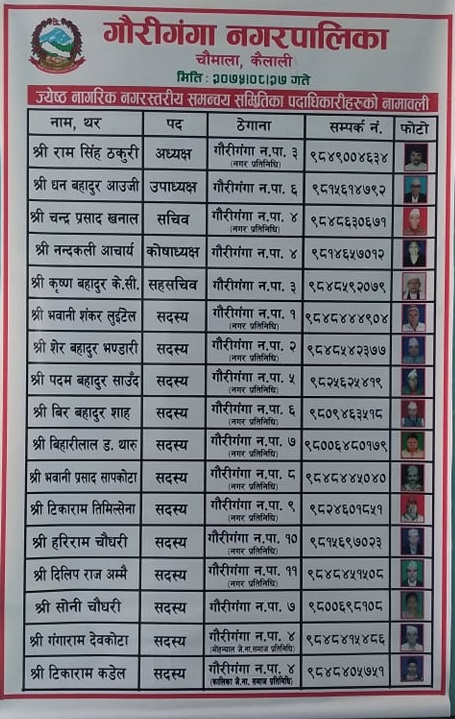 गौरीगंगा नगरपालिका
चौमाला, कैलाली
मिति : २०७५।०८।२७ गते
ज्येष्ठ नागरिक नगरस्तरीय समन्वय समितिका पदाधिकारीहरूको नामावली
नाम, थर पद ठेगाना सम्पर्क नं. फोटो
श्री राम सिंह ठकुरी अध्यक्ष गौरीगंगा न.पा. ३ ९८४९००४६३४
(नगर प्रतिनिधि)
श्री धन बहादुर आउजी उपाध्यक्ष गौरीगंगा न.पा. ६ ९८१५६१४७९२
श्री चन्द्र प्रसाद खनाल सचिव गौरीगंगा न.पा. ४ ९८४८६३०६७१
(नगर प्रतिनिधि)
श्री नन्दकली आचार्य कोषाध्यक्ष गौरीगंगा न.पा. ४ ९८१४६५७०१२
श्री कृष्ण बहादुर के.सी. सहसचिव गौरीगंगा न.पा. ३ ९८४८५९२०७९
श्री भवानी शंकर लुईटेल सदस्य गौरीगंगा न.पा. १ ९८४८४४४९०४
(नगर प्रतिनिधि)
श्री शेर बहादुर भण्डारी सदस्य गौरीगंगा न.पा. २ ९८४८५४२३७७
(नगर प्रतिनिधि)
श्री पदम बहादुर साउँद सदस्य गौरीगंगा न.पा. ५ ९८२५६२५४१९
(नगर प्रतिनिधि)
श्री बिर बहादुर शाह सदस्य गौरीगंगा न.पा. ६ ९८०९४६३५१८
(नगर प्रतिनिधि)
श्री बिहारीलाल ड. थारु सदस्य गौरीगंगा न.पा. ७ ९८००६४८०१७९
(नगर प्रतिनिधि)
श्री भवानी प्रसाद सापकोटा सदस्य गौरीगंगा न.पा. ८ ९८४८४४५०४०
(नगर प्रतिनिधि)
श्री टिकाराम तिमिल्सेना सदस्य गौरीगंगा न.पा. ९ ९८२४६०१८५१
(नगर प्रतिनिधि)
श्री हरिराम चौधरी सदस्य गौरीगंगा न.पा. १० ९८१५६९७०२३
(नगर प्रतिनिधि)
श्री दिलिप राज अम्मै सदस्य गौरीगंगा न.पा. ११ ९८४८४५१५०८
(नगर प्रतिनिधि)
श्री सोनी चौधरी सदस्य गौरीगंगा न.पा. ७ ९८००६९८१०८
श्री गंगाराम देवकोटा सदस्य गौरीगंगा न.पा. ४ ९८४८४१५४८६
(मोहन्याल जे.ना.समाज प्रतिनिधि)
श्री टिकाराम कडेल सदस्य गौरीगंगा न.पा. ४ ९८४८४०५७५१
(कालिका जे.ना. समाज प्रतिनिधि)